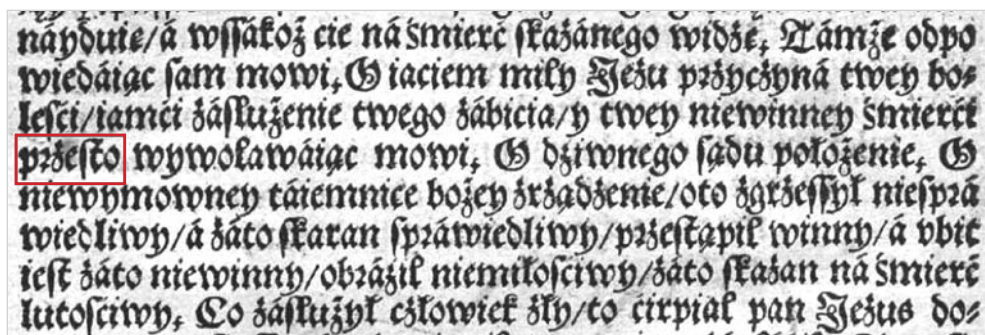 náyduie/á wſſákoż cie ná śmierć ſkázánego widzę, Támże odpo
wiedáiąc ſam mowi, O iaciem miły Jezu przyczyná twey bo⸗
leſci/iamći záſłużenie twego zábicia/y twey niewinney śmierći
przeſto wywoławáiąc mowi, O dziwnego ſądu położenie, O
niewymowney táiemnice bożey zrządzenie/oto zgrzeſſył nieſprá
wiedliwy/á záto ſkaran ſpráwiedliwy/przeſtąpił winny/á vbit
ieſt záto niewinny/obráził niemiłoſciwy/záto ſkazan ná śmierć
lutoſciwy, Co záſłużył człowiek zły/to ćirpiał pan Jezus do⸗